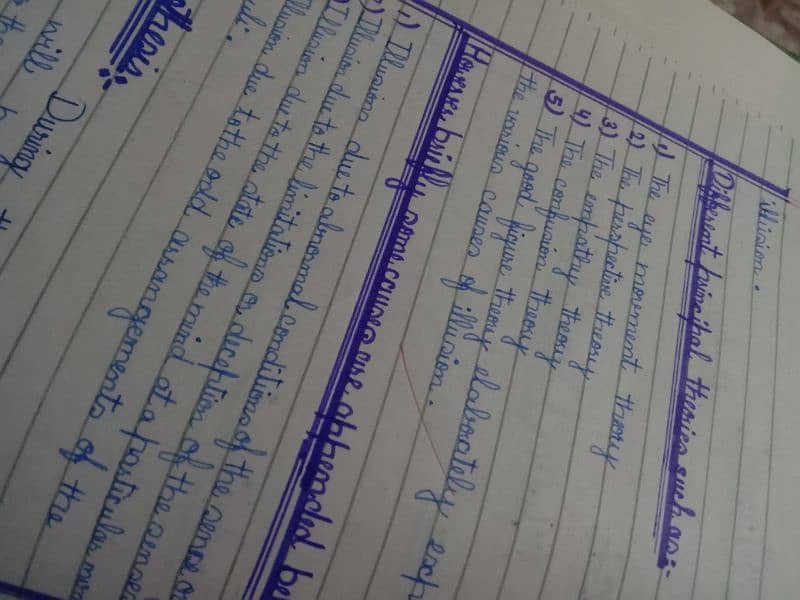 illision.
Different principal theories such as:-
1) The eye movment theory
2) The perspective theory
3) The empathy theory
4) The confusion theory
5) The good figure theory elaborately exp
the various causes of illusion.
However, briefly some causes are appended be
(1) Illusion due to abnormal conditions of the sense
Illusion due to the limitations or deception of the senses
Illusion due to the state of the mind at a particular
Illusion due to the odd arrangements of the
uli:
thesis
During
will